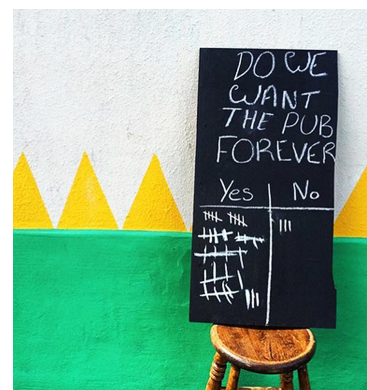 DO WE
WANT
THE PUB
FOREVER
Yes No